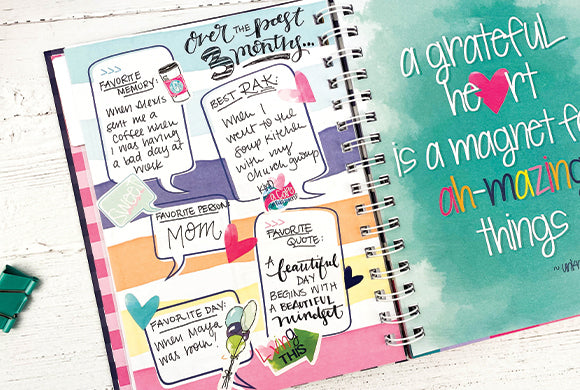 over the past
3 months...
FAVORITE
MEMORY:
When Alexis
sent me a
coffee when
I was having
a bad day at
work
BEST RAK:
When I
went to the
soup kitchen
with my
church group
SWEET
KIND
FAVORITE PERSON:
MOM
FAVORITE
QUOTE:
A
beautiful
DAY
BEGINS WITH
A BEAUTIFUL
mindset
FAVORITE DAY:
When Maya
was born!
Loving
THIS
a grateful
heart
is a magnet fo
ah-mazing
things